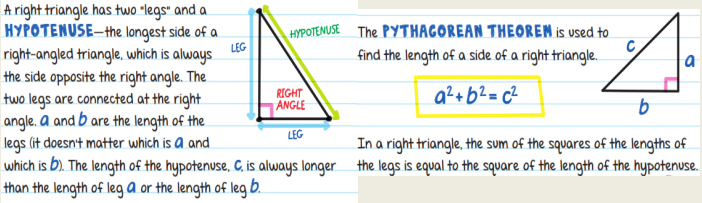 A right triangle has two "legs" and a
HYPOTENUSE—the longest side of a
right-angled triangle, which is always
the side opposite the right angle. The
two legs are connected at the right
angle. a and b are the length of the
legs (it doesn't matter which is a and
which is b). The length of the hypotenuse, c, is always longer
than the length of leg a or the length of leg b.
LEG
HYPOTENUSE
RIGHT
ANGLE
LEG
The PYTHAGOREAN THEOREM is used to
find the length of a side of a right triangle.
c
a
b
a²+b²=c²
In a right triangle, the sum of the squares of the lengths of
the legs is equal to the square of the length of the hypotenuse.